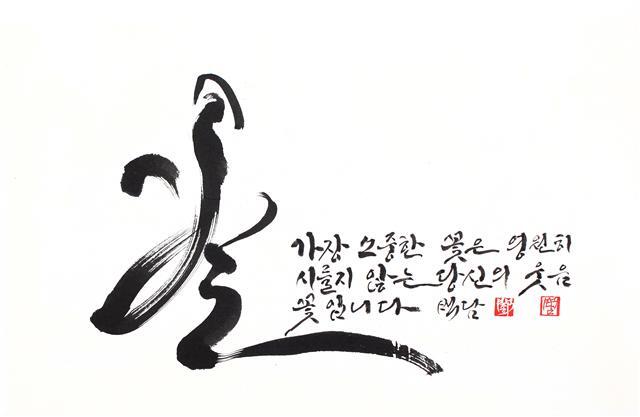 꽃
가장 소중한 꽃은 영원히
시들지 않는 당신의 웃음
꽃입니다 백담